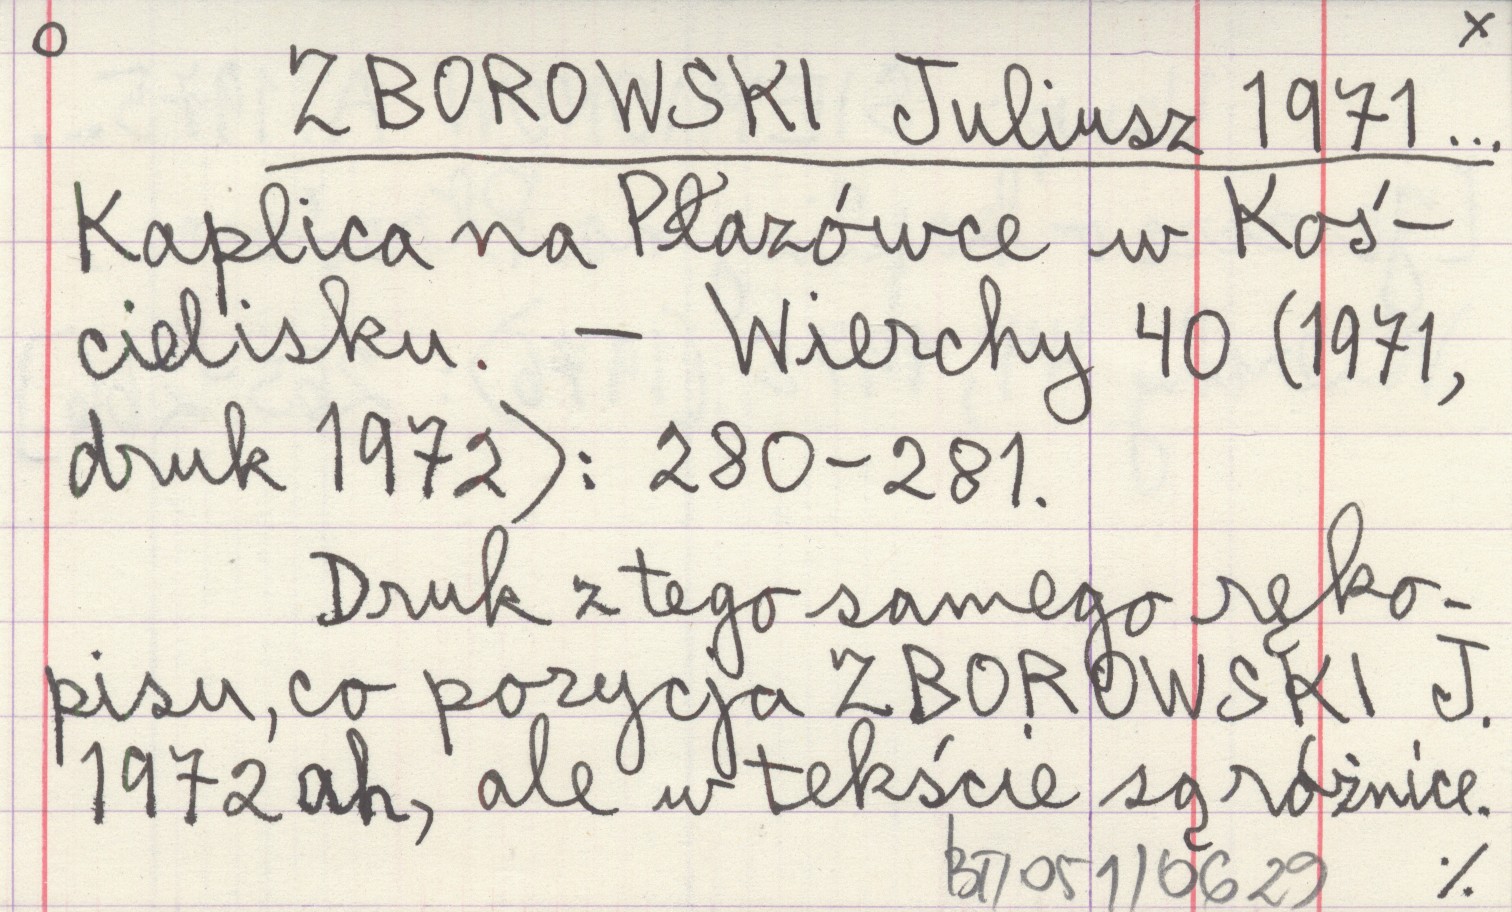 o x
ZBOROWSKI Juliusz 1971...
Kaplica na Płazówce w Koś-
cielisku. – Wierchy 40 (1971,
druk 1972): 280–281.
Druk z tego samego ręko-
pisu, co pozycja ZBOROWSKI J.
1972 ah, ale w tekście są różnice.
BT/051/0629 ./.